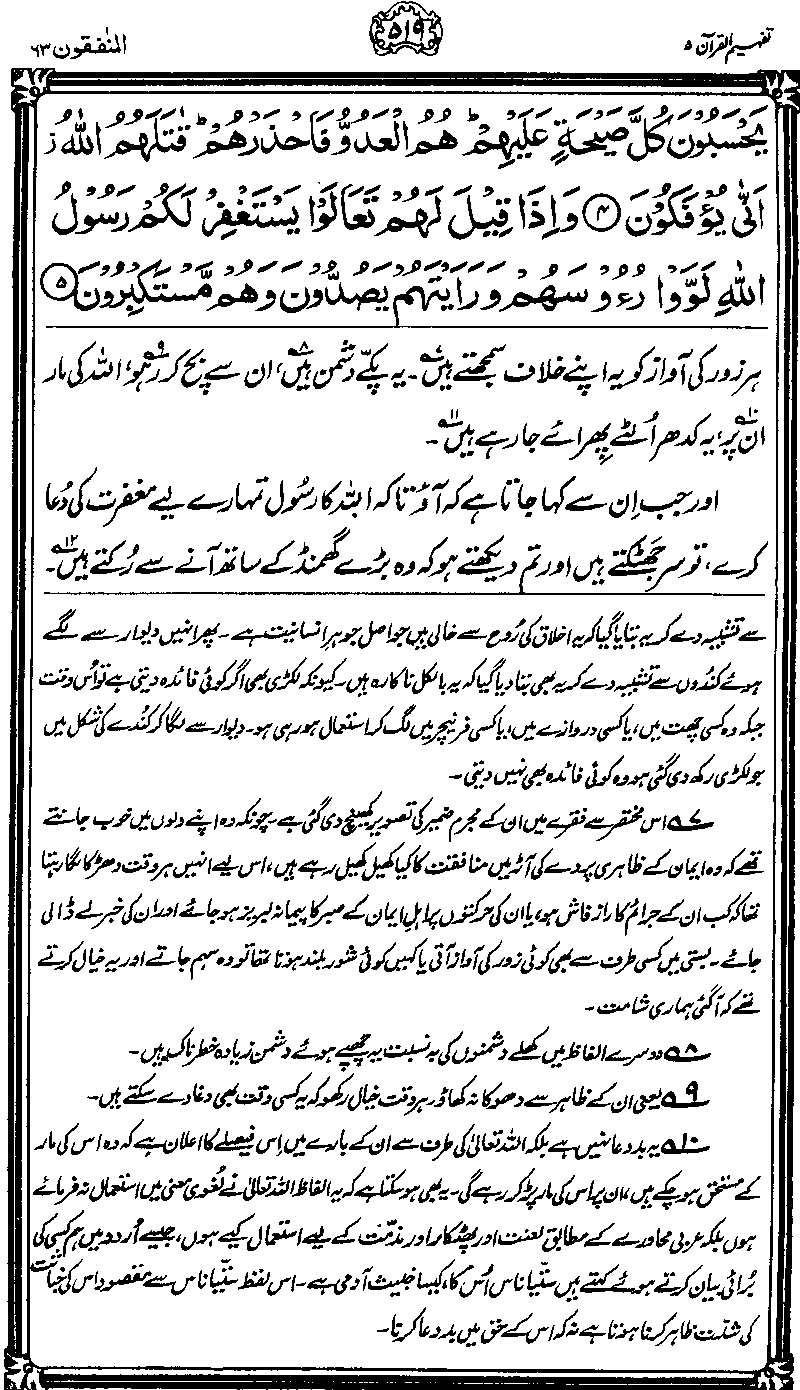 تفہیم القرآن ۵
۵۱۹
المنٰفقون ۶۳
يَحْسَبُوْنَ كُلَّ صَيْحَةٍ عَلَيْهِمْ ؕ هُمُ الْعَدُوُّ فَاحْذَرْهُمْ ؕ قٰتَلَهُمُ اللّٰهُ ز
اَنّٰى يُؤْفَكُوْنَ ۴ وَاِذَا قِيْلَ لَهُمْ تَعَالَوْا يَسْتَغْفِرْ لَكُمْ رَسُوْلُ
اللّٰهِ لَوَّوْا رُءُوْسَهُمْ وَرَاَيْتَهُمْ يَصُدُّوْنَ وَهُمْ مُّسْتَكْبِرُوْنَ ۵
ہر زور کی آواز کو یہ اپنے خلاف سمجھتے ہیں۷۔ یہ پکّے دشمن ہیں۸، ان سے بچ کر رہو۹، اللہ کی مار
ان پر۱۰، یہ کدھر اُلٹے پھرائے جا رہے ہیں۱۱۔
اور جب اِن سے کہا جاتا ہے کہ آؤ تاکہ اللہ کا رسُول تمہارے لیے مغفرت کی دُعا
کرے، تو سر جھٹکتے ہیں اور تم دیکھتے ہو کہ وہ بڑے گھمنڈ کے ساتھ آنے سے رُکتے ہیں۱۲۔
سے تشبیہ دے کر یہ بتایا گیا کہ یہ اخلاق کی رُوح سے خالی ہیں جو اصل جوہرِ انسانیت ہے۔ پھر انہیں دیوار سے لگے
ہوئے کندوں سے تشبیہ دے کر یہ بھی بتا دیا گیا کہ یہ بالکل ناکارہ ہیں۔ کیونکہ لکڑی بھی اگر کوئی فائدہ دیتی ہے تو اُس وقت
جبکہ وہ کسی چھت میں، یا کسی دروازے میں، یا کسی فرنیچر میں لگ کر استعمال ہو رہی ہو۔ دیوار سے لگا کر کندے کی شکل میں
جو لکڑی رکھ دی گئی ہو وہ کوئی فائدہ بھی نہیں دیتی۔
۷ اس مختصر سے فقرے میں ان کے مجرم ضمیر کی تصویر کھینچ دی گئی ہے۔ چونکہ وہ اپنے دلوں میں خوب جانتے
تھے کہ وہ ایمان کے ظاہری پردے کی آڑ میں منافقت کا کیا کھیل کھیل رہے ہیں، اس لیے انہیں ہر وقت دھڑکا لگا رہتا
تھا کہ کب ان کے جرائم کا راز فاش ہو، یا ان کی حرکتوں پر اہل ایمان کے صبر کا پیمانہ لبریز ہو جائے اور ان کی خبر لے ڈالی
جائے۔ بستی میں کسی طرف سے بھی کوئی زور کی آواز آتی یا کہیں کوئی شور بلند ہوتا تھا تو وہ سہم جاتے اور یہ خیال کرتے
تھے کہ آ گئی ہماری شامت۔
۸ دوسرے الفاظ میں کھلے دشمنوں کی بہ نسبت یہ چھپے ہوئے دشمن زیادہ خطرناک ہیں۔
۹ یعنی ان کے ظاہر سے دھوکا نہ کھاؤ۔ ہر وقت خیال رکھو کہ یہ کسی وقت بھی دغا دے سکتے ہیں۔
۱۰ یہ بددعا نہیں ہے بلکہ اللہ تعالیٰ کی طرف سے ان کے بارے میں اِس فیصلے کا اعلان ہے کہ وہ اس کی مار
کے مستحق ہو چکے ہیں، ان پر اس کی مار پڑ کر رہے گی۔ یہ بھی ہو سکتا ہے کہ یہ الفاظ اللہ تعالیٰ نے لُغوی معنی میں استعمال نہ فرمائے
ہوں بلکہ عربی محاورے کے مطابق لعنت اور پھٹکار اور مذمّت کے لیے استعمال کیے ہوں، جیسے اُردو میں ہم کسی کی
بُرائی بیان کرتے ہوئے کہتے ہیں ستیاناس اُس کا، کیسا خبیث آدمی ہے۔ اس لفظ ستیاناس سے مقصود اس کی خباثت
کی شدّت ظاہر کرنا ہوتا ہے نہ کہ اس کے حق میں بددعا کرنا۔